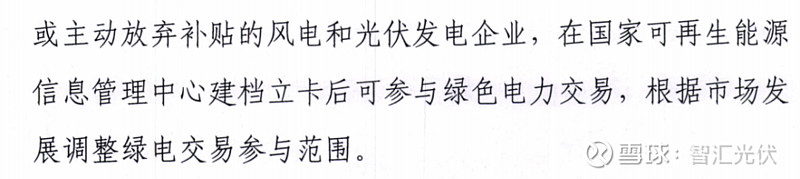 或主动放弃补贴的风电和光伏发电企业，在国家可再生能源
信息管理中心建档立卡后可参与绿色电力交易，根据市场发
展调整绿电交易参与范围。
雪球：智汇光伏